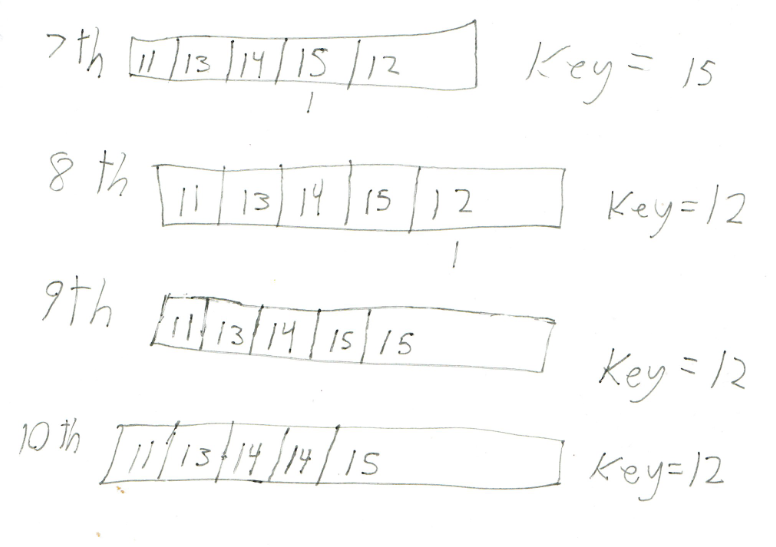 7th 11 13 14 15 12 Key = 15
1
8 th 11 13 14 15 12 Key=12
1
9th 11 13 14 15 15 Key = 12
10th 11 13 14 14 15 Key=12